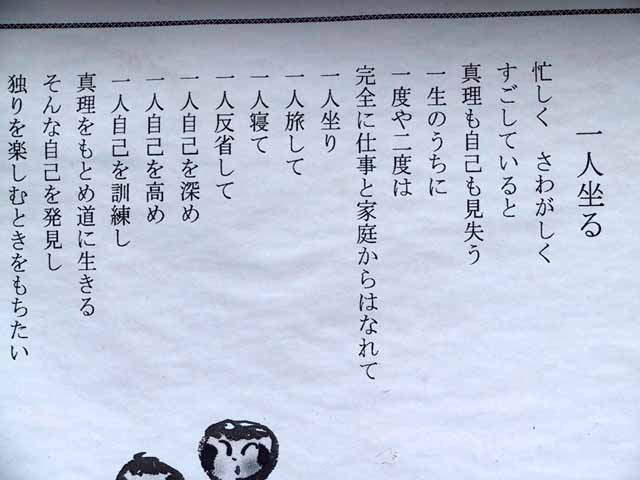 一人坐る
忙しく　さわがしく
すごしていると
真理も自己も見失う
一生のうちに
一度や二度は
完全に仕事と家庭からはなれて
一人坐り
一人旅して
一人寝て
一人反省して
一人自己を深め
一人自己を高め
一人自己を訓練し
真理をもとめ道に生きる
そんな自己を発見し
独りを楽しむときをもちたい